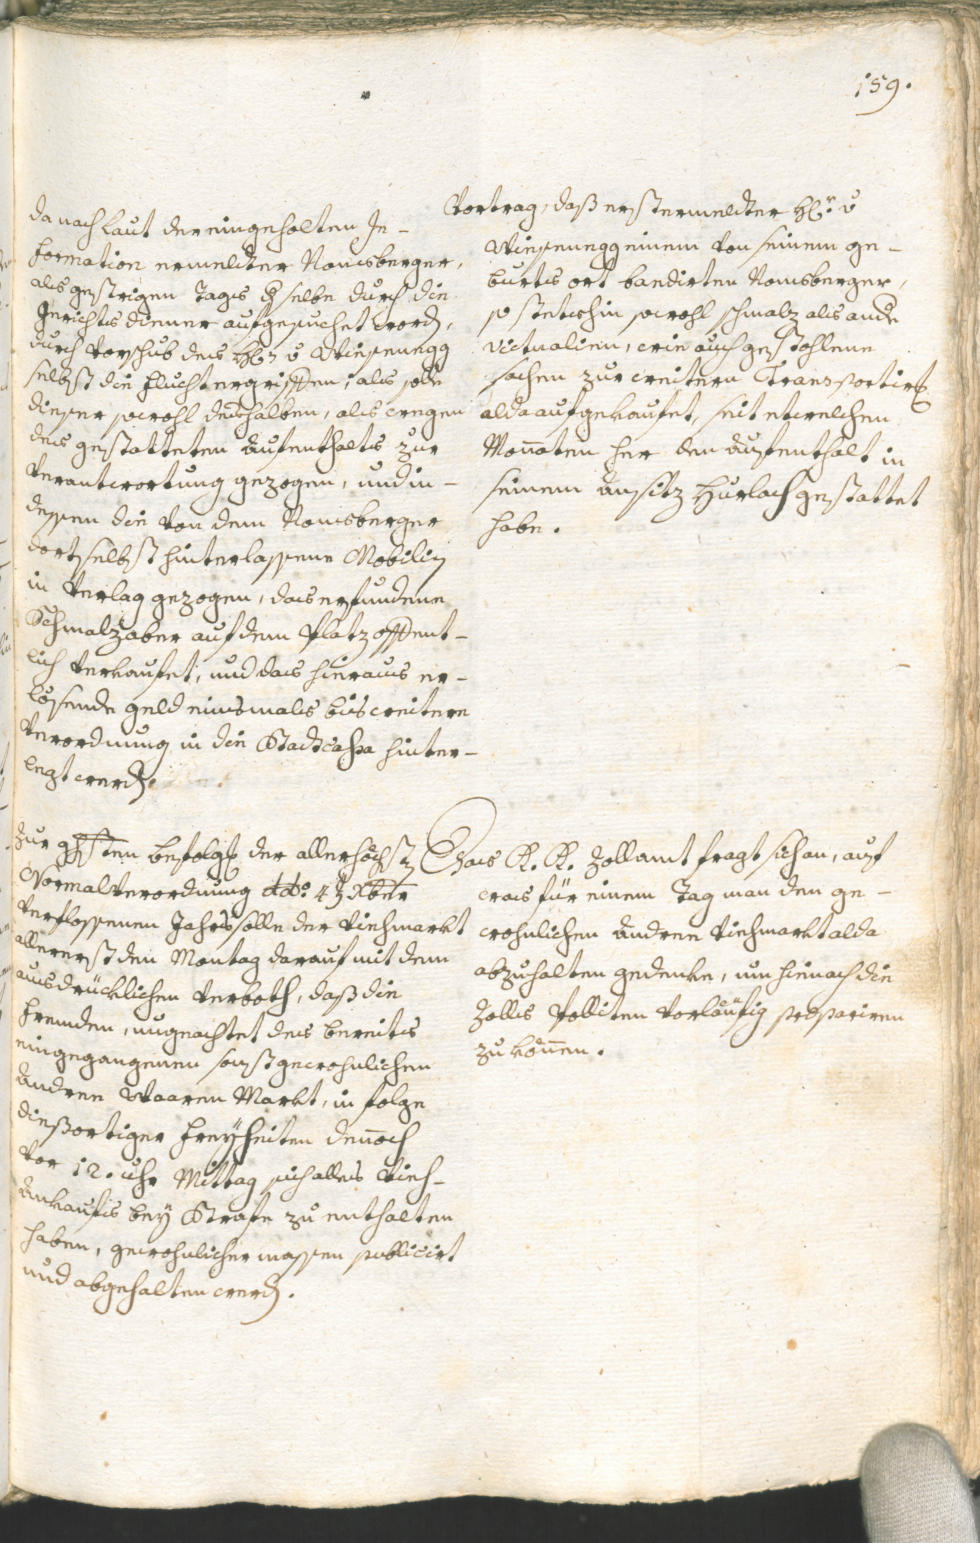 159.
da nach laut der eingeholten In-
formation ermeldter Nonsberger,
als gestrigen Tags derselbe durch die
Gerichts diener aufgesuchet word.,
durch Vorschub des H: v Wiesenegg
selbst die flucht ergriffen; als solle
dieser sowohl deshalben, als wegen
des gestatteten aufenthalts zur
Verantwortung gezogen, und in-
dessen die von dem Nonsberger
dortselbst hinterlassene Mobilien
in Verlag gezogen, das erfundene
Schmalz aber auf dem Platz offent-
lich verkaufet, und das hieraus er-
lösende geld einsmals bis weitere
Verordnung in die Stadtcassa hinter-
legt werd.
Vortrag, daß erstermeldter H: v
Wiesenegg einem von seinem ge-
burts ort bandirten Nonsberger,
so stetshin sowohl schmalz als ande
victualien, wie auch gestohlene
sachen zur weitern Transportirg
alda aufgekaufet, seit etwelchen
Monaten her den aufenthalt in
seinem ansitz Hurlach gestattet
habe.
Zur gehsten befolgg der allerhöchst
Normal Verordnung ddo: 4 Xber
verflossenen Jahrs solle der Viehmarkt
allererst den Montag darauf mit dem
ausdrücklichen Verboth, daß die
fremden, ungeachtet des bereits
eingegangenen sonst gewohnlichen
Andree Waaren Markt, in folge
dießortiger freyheiten dennoch
vor 12. uhr Mittag sich alles Vieh-
ankaufs bey Strafe zu enthalten
haben, gewohnlichermassen publicirt
und abgehalten werd.
Das K. K. Zollamt fragt sich an, auf
was für einem Tag man den ge-
wohnlichen Andree Viehmarkt alda
abzuhalten gedenke, um hienach die
Zolls Polliten vorläufig preparieren
zu können.